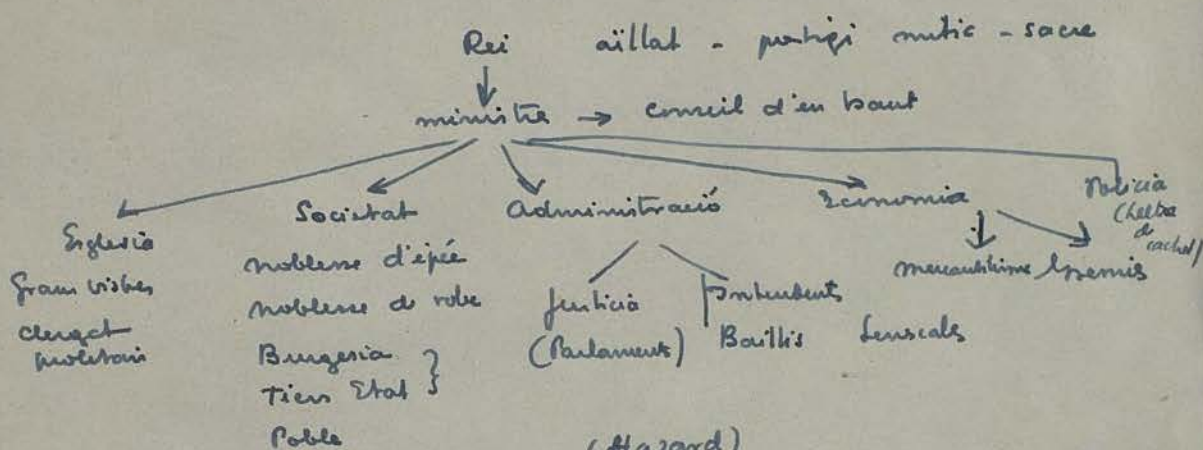 Rei aïllat - prestigi mític - sacre
ministre → Conseil d'en haut
Església
Grans bisbes
clergat
proletari
Societat
noblesse d'épée
noblesse de robe
Burgesia
Tiers Etat
Poble
Administració
Justícia
(Parlament)
Intendents
Baillis Senescals
Economia
mercantilisme Gremis
Policia
(lettre
de
cachet)
(Hazard)